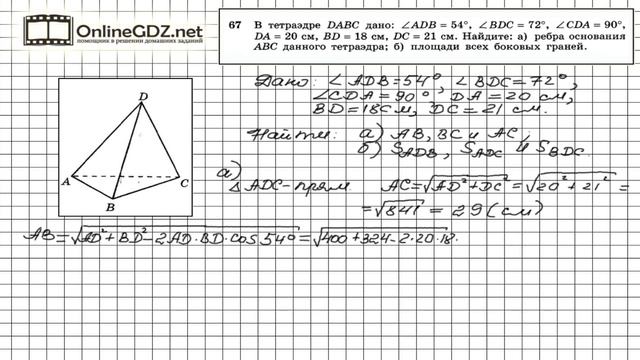 OnlineGDZ.net
помощник в решении домашних заданий
67 В тетраэдре DABC дано: ∠ADB = 54°, ∠BDC = 72°, ∠CDA = 90°,
DA = 20 см, BD = 18 см, DC = 21 см. Найдите: а) ребра основания
ABC данного тетраэдра; б) площади всех боковых граней.
Дано: ∠ADB=54°, ∠BDC=72°,
∠CDA=90°, DA=20 см,
BD=18см, DC=21 см.
Найти: а) AB, BC и AC,
б) S_ADB, S_ADC и S_BDC.
D
A
C
B
а)
△ADC-прям. AC=√AD²+DC²=√20²+21²=
=√841=29(см)
AB=√AD²+BD²-2AD·BD·cos54°=√400+324-2·20·18·